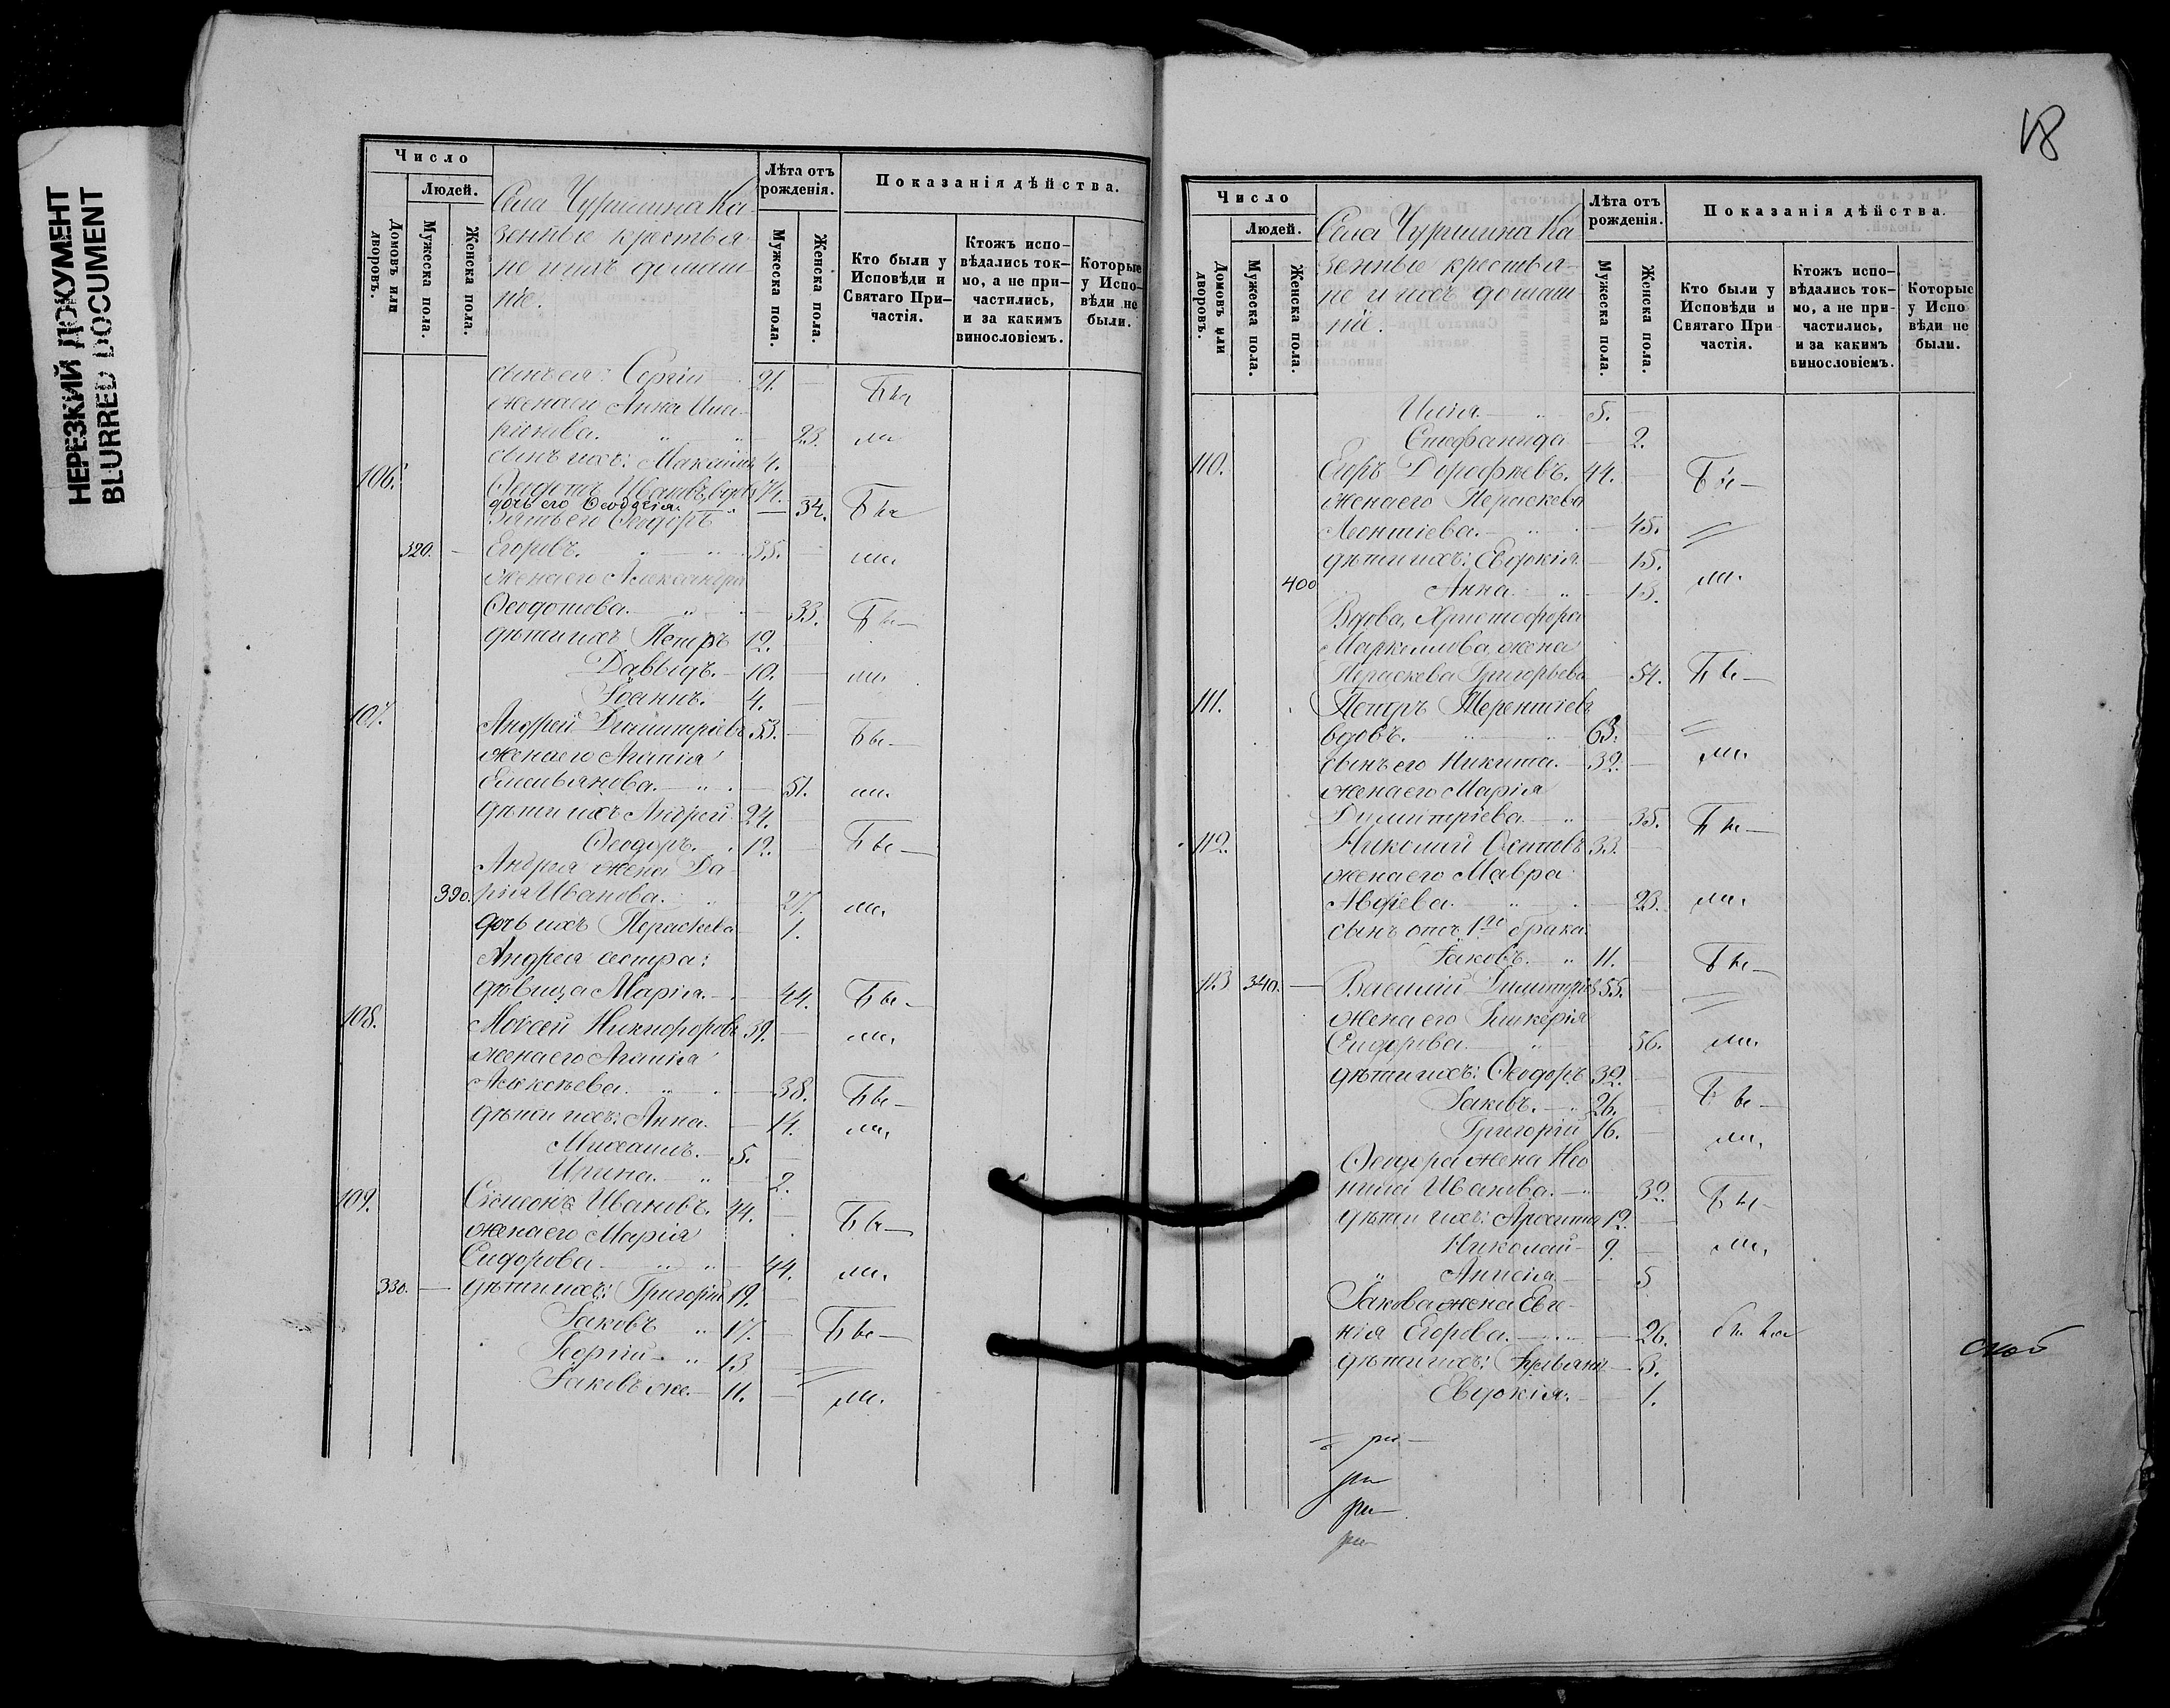 НЕРЕЗКИЙ ДОКУМЕНТ
BLURRED DOCUMENT
Число
Людей.
Домовъ или дворовъ.
Мужеска пола.
Женска пола.
Села Чуршина Ка-
зенные крестья-
не и ихъ домаш-
ніе.
Лѣта отъ рожденія.
Мужеска пола.
Женска пола.
Показанія дѣйства.
Кто были у Исповѣди и Святаго При-частія.
Ктожъ испо-вѣдались ток-мо, а не при-частились, и за какимъ винословіемъ.
Которые у Испо-вѣди не были.
сынъ ея: Сергій 21.
жена его Анна Ила-
ріонова. 23.
сынъ ихъ: 4.
106. Ѳеодотъ Ивановъ вдовъ
дочь его Ѳеодосія. 34.
Зять его Ѳеодоръ
320. Егоровъ. 35.
жена его Александра
Ѳеодотова. 33.
дѣти ихъ Петръ 12.
Даввидъ. 10.
Іоаннъ. 4.
107. Андрей Димитріевъ 53.
жена его Агапія
Емельянова. 51.
дѣти ихъ Андрей 24.
Ѳеодоръ. 12.
Андрея жена Да-
390. рія Иванова. 27.
дочь ихъ Параскева 1.
Андрея сестра:
дѣвица Марія. 44.
108. Моисей Никифоровъ 39.
жена его Агапія
Алексѣева. 38.
дѣти ихъ: Анна. 14.
Михаилъ. 5.
Ирина. 2.
109. Симеонъ Ивановъ. 44.
жена его Марія
Сидорова 44.
330. дѣти ихъ: Григорій 19.
Іаковъ 17.
Георгій 13
Іаковъ же. 11.
18
Число
Людей.
Домовъ или дворовъ.
Мужеска пола.
Женска пола.
Села Чуршина Ка-
зенные крестья-
не и ихъ домаш-
ніе.
Лѣта отъ рожденія.
Мужеска пола.
Женска пола.
Показанія дѣйства.
Кто были у Исповѣди и Святаго При-частія.
Ктожъ испо-вѣдались ток-мо, а не при-частились, и за какимъ винословіемъ.
Которые у Испо-вѣди не были.
Илія 5.
Стефанида 2.
110. Егоръ Дорофѣевъ. 44.
жена его Параскева
Леонтіева. 45.
дѣти ихъ: Евдокія 15.
400 Анна 13.
Вдова, Христофора
Маркелова жена
Параскева Григорьева 54.
111. Петръ Терентіевъ
вдовъ. 63.
сынъ его Никита. 32.
жена его Марія
Димитріева 35.
112. Николай Осиповъ 33.
жена его Мавра
23.
сынъ отъ 1го брака
Іаковъ. 11.
113 340. Василій Димитріевъ 55.
жена его Гликерія
Сидорова 56.
дѣти ихъ: Ѳеодоръ 32.
Іаковъ. 26.
Григорій 16.
Ѳеодора жена Нео
нила Иванова. 32.
дѣти ихъ: 12.
Николай 9.
Анисія 5
Іакова жена Евге-
нія Егорова. 26.
дѣти ихъ: 3.
Евдокія. 1.
ской